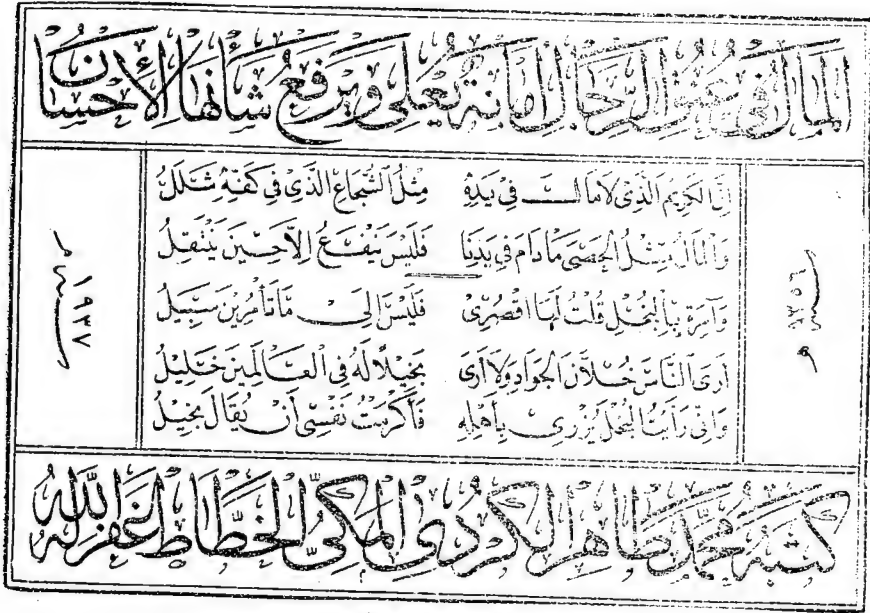 المال في عين الرجال امانة يعلي ويرفع شأنها الإحسان
سنة ١٣٥٦ هـ
إن الكريم الذي لا مال في يده مثل الشجاع الذي في كفه شلل
والمال مثل الحصى ما دام في يدنا فليس ينفع إلا حين ينتقل
وآمرة بالبخل قلت لها اقصري فليس إلى ما تأمرين سبيل
أرى الناس خلان الجواد ولا أرى بخيلا له في العالمين خليل
وإني رأيت البخل يزري بأهله فأكرمت نفسي أن يقال بخيل
سنة ١٩٣٧ م
كتبه محمد طاهر الكردي المكي الخطاط غفر الله له